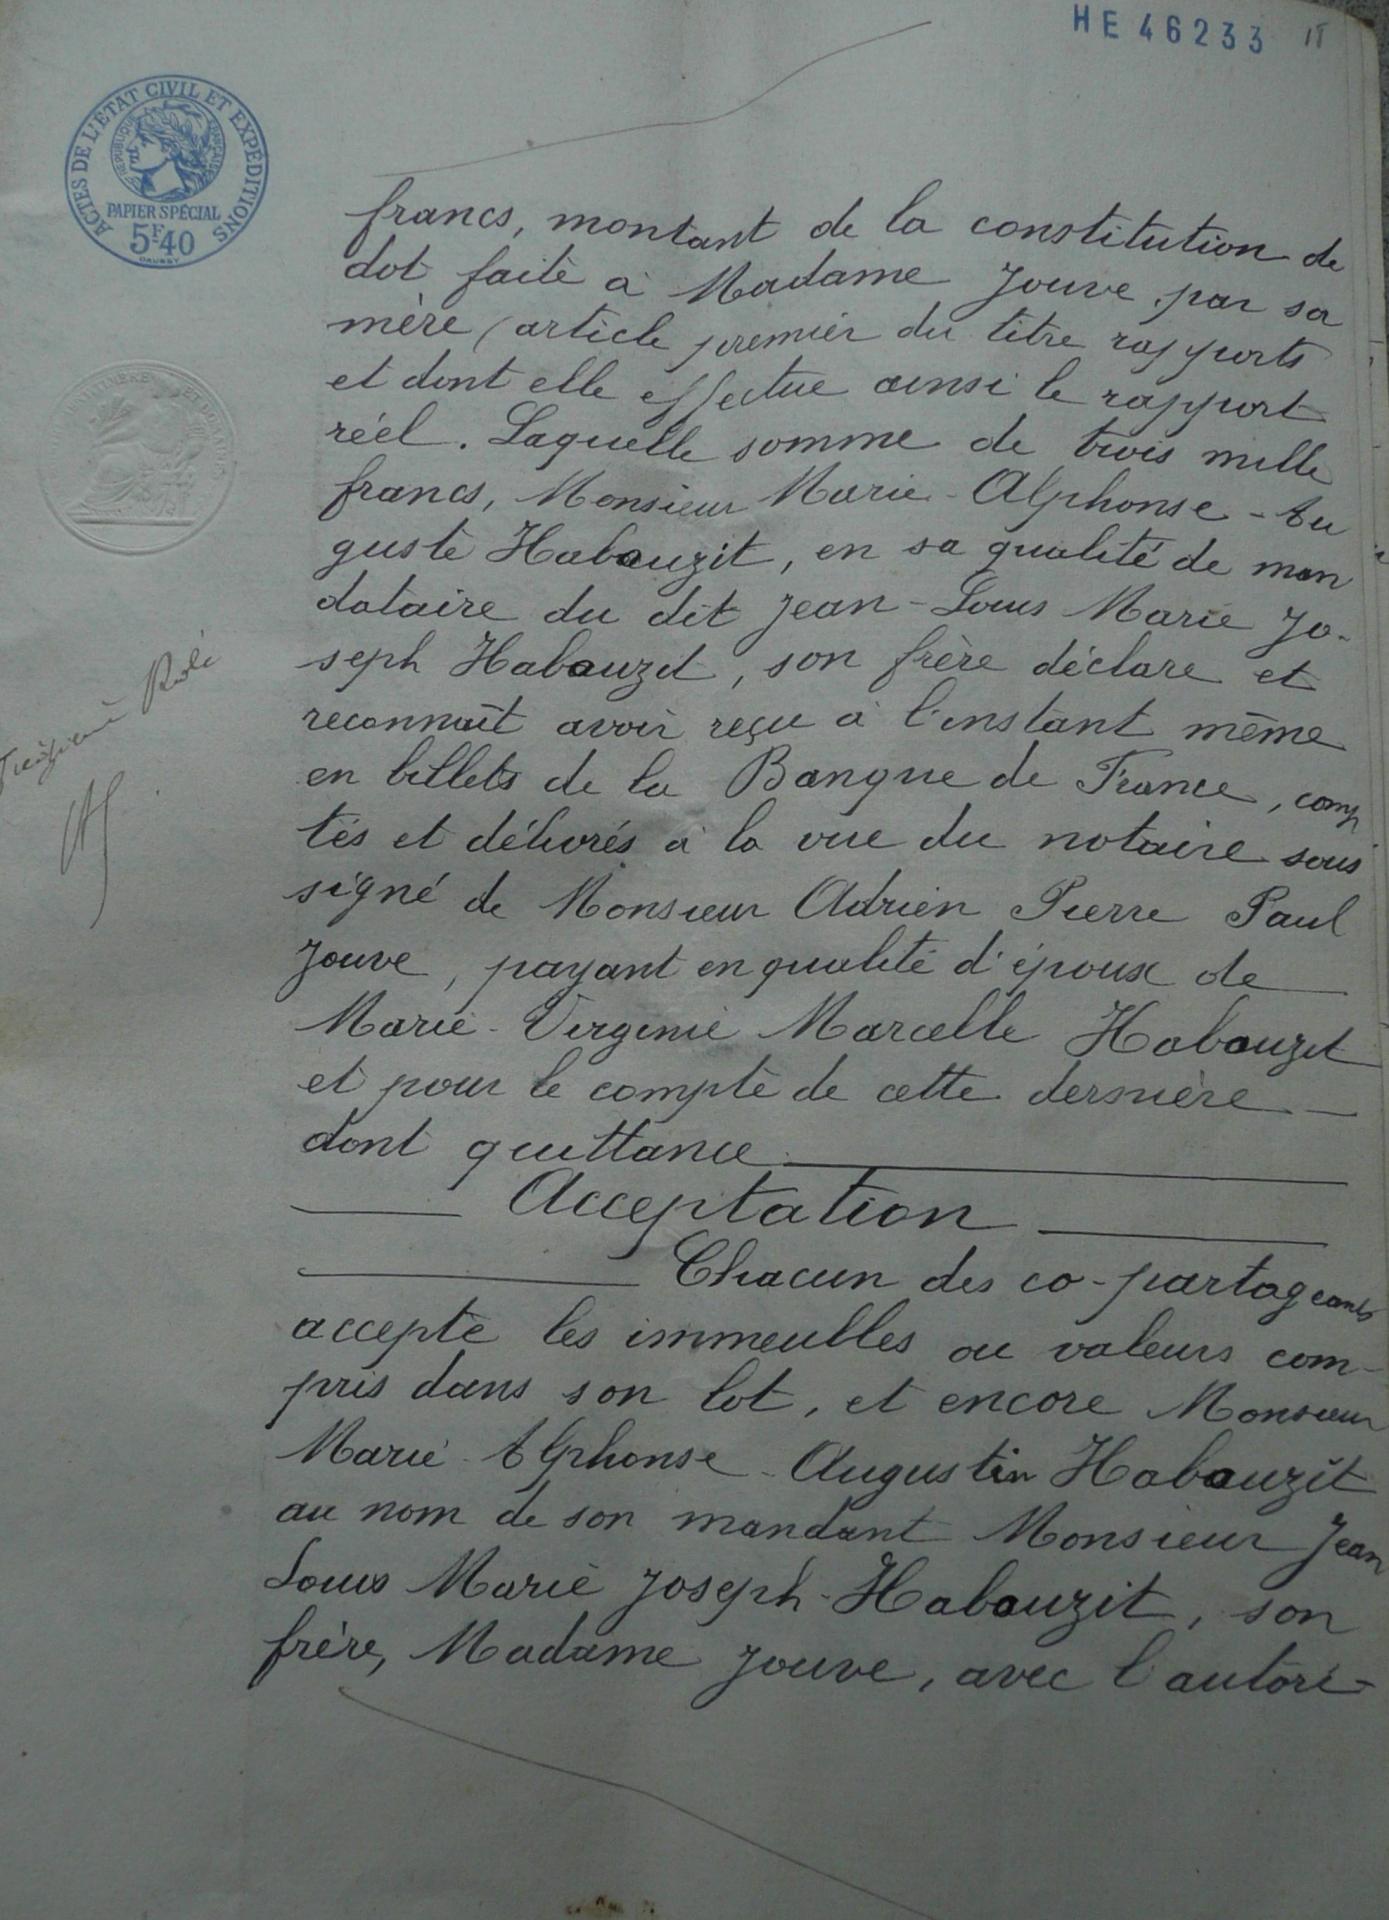 HE 46233
ACTES DE L'ETAT CIVIL ET EXPEDITIONS
REPUBLIQUE FRANÇAISE
PAPIER SPÉCIAL
5F40
DAUSSY
francs, montant de la constitution de
dot faite à Madame Jouve par sa
mère (article premier du titre rapports
et dont elle effectue ainsi le rapport
réel. Laquelle somme de trois mille
francs, Monsieur Marie-Alphonse-Au
guste Habauzit, en sa qualité de man
dataire du dit Jean-Louis Marie Jo-
seph Habauzit, son frère déclare et
reconnait avoir reçu à l'instant même
en billets de la Banque de France, comp
tés et délivrés à la vue du notaire sous
signé de Monsieur Adrien Pierre Paul
Jouve, payant en qualité d'époux de
Marie-Virginie Marcelle Habauzit
et pour le compte de cette dernière
dont quittance
Acceptation
Chacun des co-partageants
accepte les immeubles ou valeurs com-
pris dans son lot, et encore Monsieur
Marie-Alphonse-Augustin Habauzit
au nom de son mandant Monsieur Jean
Louis Marie Joseph-Habauzit, son
frère, Madame Jouve, avec l'autori-
Rôle